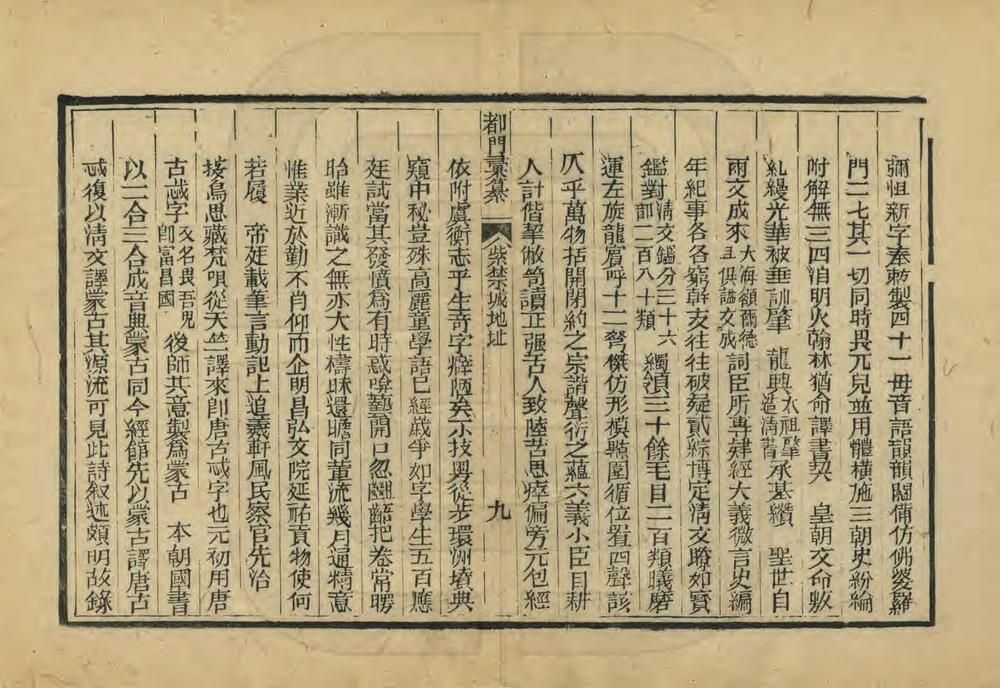 彌怛新字奉勑製四十一毋音語韻闊備仿佛婆羅
門二七其一切同時畏兀兒並用體橫施三朝史紛綸
附解無三四洎明火翰林猶命譯書契 皇朝文命敷
糺縵光華被垂訓肇 龍興太祖肇造淸書承基纘 聖世自
雨文成來大海額爾德且俱諡文成詞臣所專肄經大義微言史編
年紀事各各窮幹支往往破疑貳綜博定淸文瞭如寶
鑑對淸文鑑分三十六部二百八十類 綱領三十餘毛目二百類曦磨
運左旋龍賓呼十二脣傑仿形模縣圍循位署四聲該
仄乎萬物括開閉約之宗諧聲衍之蘊六義小臣目耕
人計偕挈敝笥讀正强舌人致陸苦思瘁偏旁元包經
都門彙纂 紫禁城地址 九
依附虞衡志乎生奇字癖陋矣小技與從步環洲墳典
窺中秘豈殊高麗童學語已經歲爭如字學生五百應
廷試當其發憤爲有時或喚囈開口忽齟齬把卷常曖
眙雖漸識之無亦大性檮昧還瞻同董流幾月逼精意
惟業近於勤不肖仰而企明昌弘文院延祐貢物使何
若履 帝廷載筆言動記上追羲軒風民察官先治
接烏思藏梵唄從天竺譯來卽唐古忒字也元初用唐
古忒字又名畏吾兒卽富昌國 後師其意製爲蒙古 本朝國書
以二合三合成音與蒙古同今經館先以蒙古譯唐古
忒復以淸文譯蒙古其源流可見此詩叙述頗明故錄